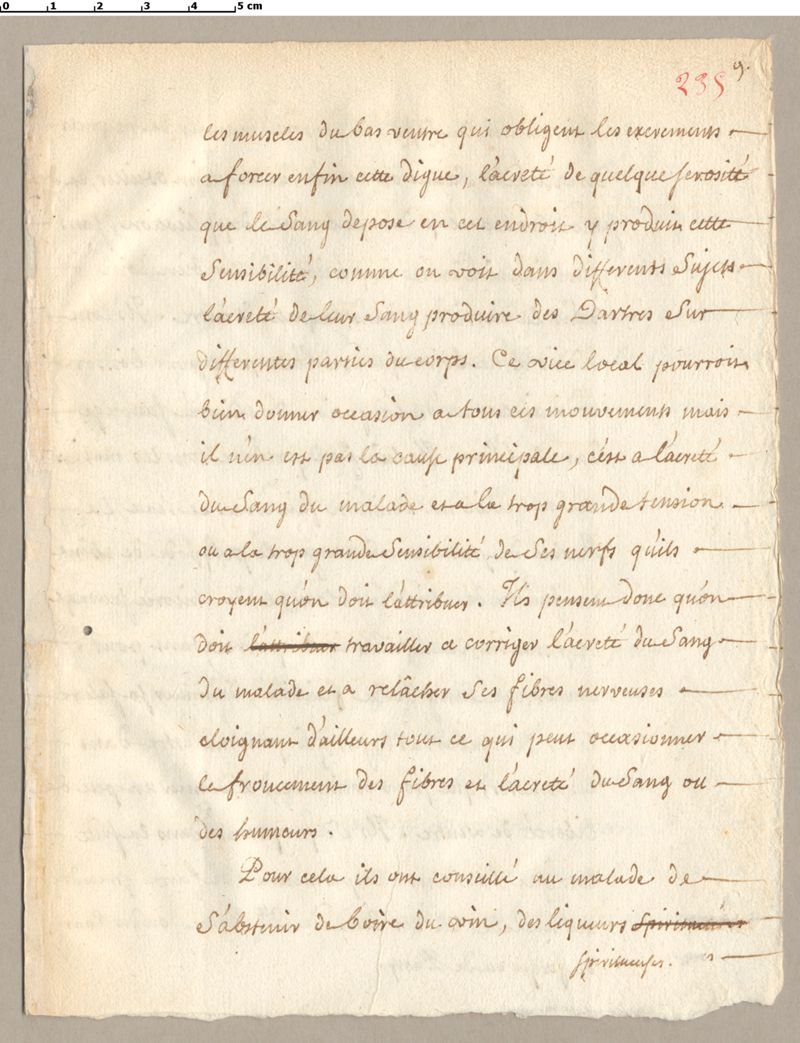 0 1 2 3 4 5 cm
235 9.
les muscles du bas ventre qui obligent les excrements
a forcer enfin cette digue, l'acreté de quelque serosité
que le Sang depose en cet endroit y produit cette
Sensibilité, comme on voit dans differents Sujets
l'acreté de leur Sang produire des Dartres Sur
differentes parties du corps. Ce vice local pourroit
bien donner occasion a tous ces mouvements mais
il n'en est pas la cause principale, c'est a l'acreté
du Sang du malade et a la trop grande tension
ou a la trop grande Sensibilité de Ses nerfs qu'ils
croyent qu'on doit l'attribuer. Ils pensent donc qu'on
doit l'attribuer travailler a corriger l'acreté du Sang
du malade et a relâcher Ses fibres nerveuses
eloignant d'ailleurs tout ce qui peut occasionner
le froncement des fibres et l'acreté du Sang ou
des humeurs.
Pour cela ils ont conseillé au malade de
S'abstenir de boire du vin, des liqueurs Spiritueuses
spiritueuses.